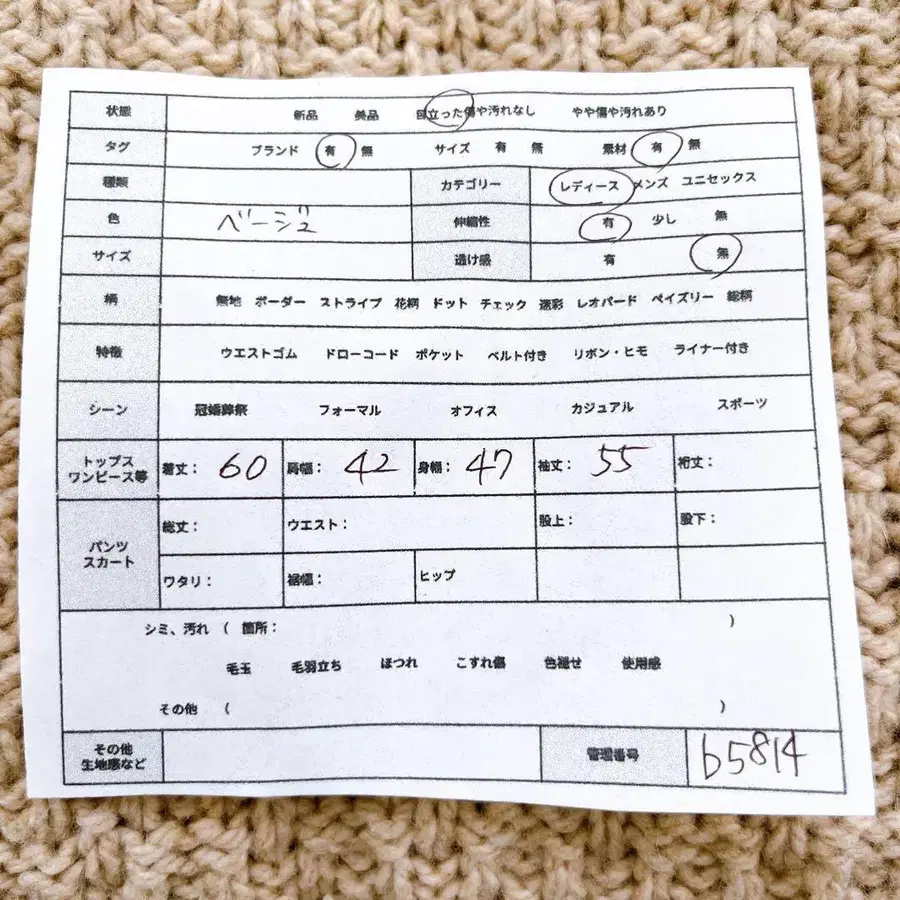 状態 新品 美品 目立った傷や汚れなし やや傷や汚れあり
タグ ブランド 有 無 サイズ 有 無 素材 有 無
種類 カテゴリー レディース メンズ ユニセックス
色 ベージュ 伸縮性 有 少し 無
サイズ 透け感 有 無
柄 無地 ボーダー ストライプ 花柄 ドット チェック 迷彩 レオパード ペイズリー 総柄
特徴 ウエストゴム ドローコード ポケット ベルト付き リボン・ヒモ ライナー付き
シーン 冠婚葬祭 フォーマル オフィス カジュアル スポーツ
トップス
ワンピース等 着丈: 60 肩幅: 42 身幅: 47 袖丈: 55 裄丈:
パンツ
スカート 総丈: ウエスト: 股上: 股下:
ワタリ: 裾幅: ヒップ
シミ、汚れ ( 箇所: )
毛玉 毛羽立ち ほつれ こすれ傷 色褪せ 使用感
その他 ( )
その他
生地感など 管理番号 b5814